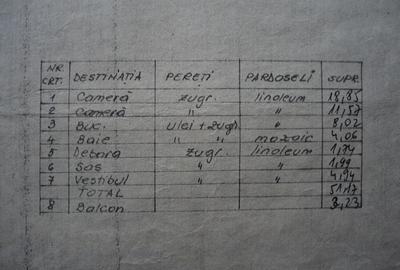 NR. CRT. DESTINATIA PERETI PARDOSELI SUPR.
1 Cameră zugr. linoleum 18,85
2 Cameră " " 11,57
3 Buc. ulei + zugr. " 8,02
4 Baie " " mozaic 4,06
5 Debara zugr. linoleum 1,74
6 Sas " " 1,99
7 Vestibul " " 4,94
TOTAL 51,17
8 Balcon 3,23